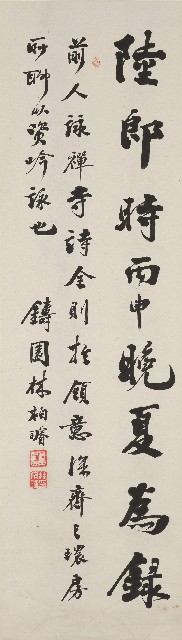 陸郎時丙申晚夏為錄
前人詠禪寺詩全則於領意深齋之環房
所聊以資吟詠也
鑄園林柏壽